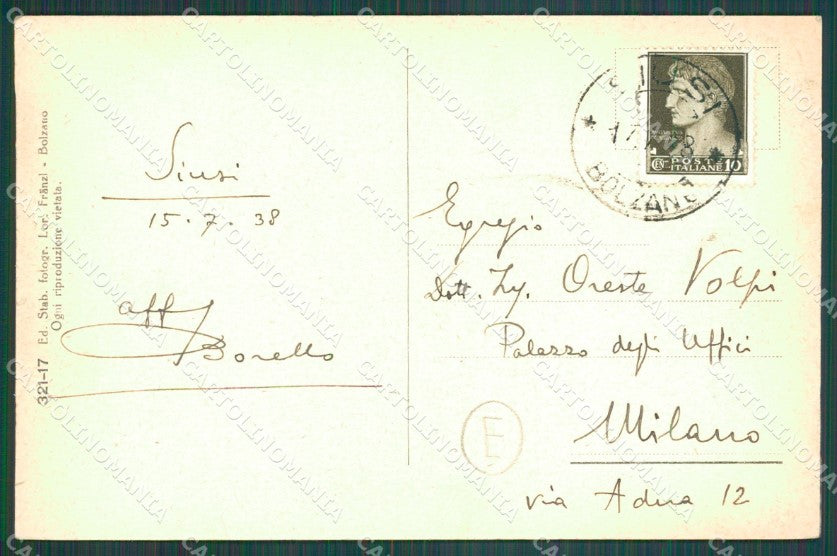 321-17 Ed. Stab. fotogr. Lor. Fränzl - Bolzano
Ogni riproduzione vietata.
Siusi
15.7.38
aff
Borello
SIUSI
BOLZANO
POSTE
ITALIANE 10
Egregio
Dott. Ing. Oreste Volpi
Palazzo degli Uffici
Milano
via Adua 12
E
CARTOLINOMANIA